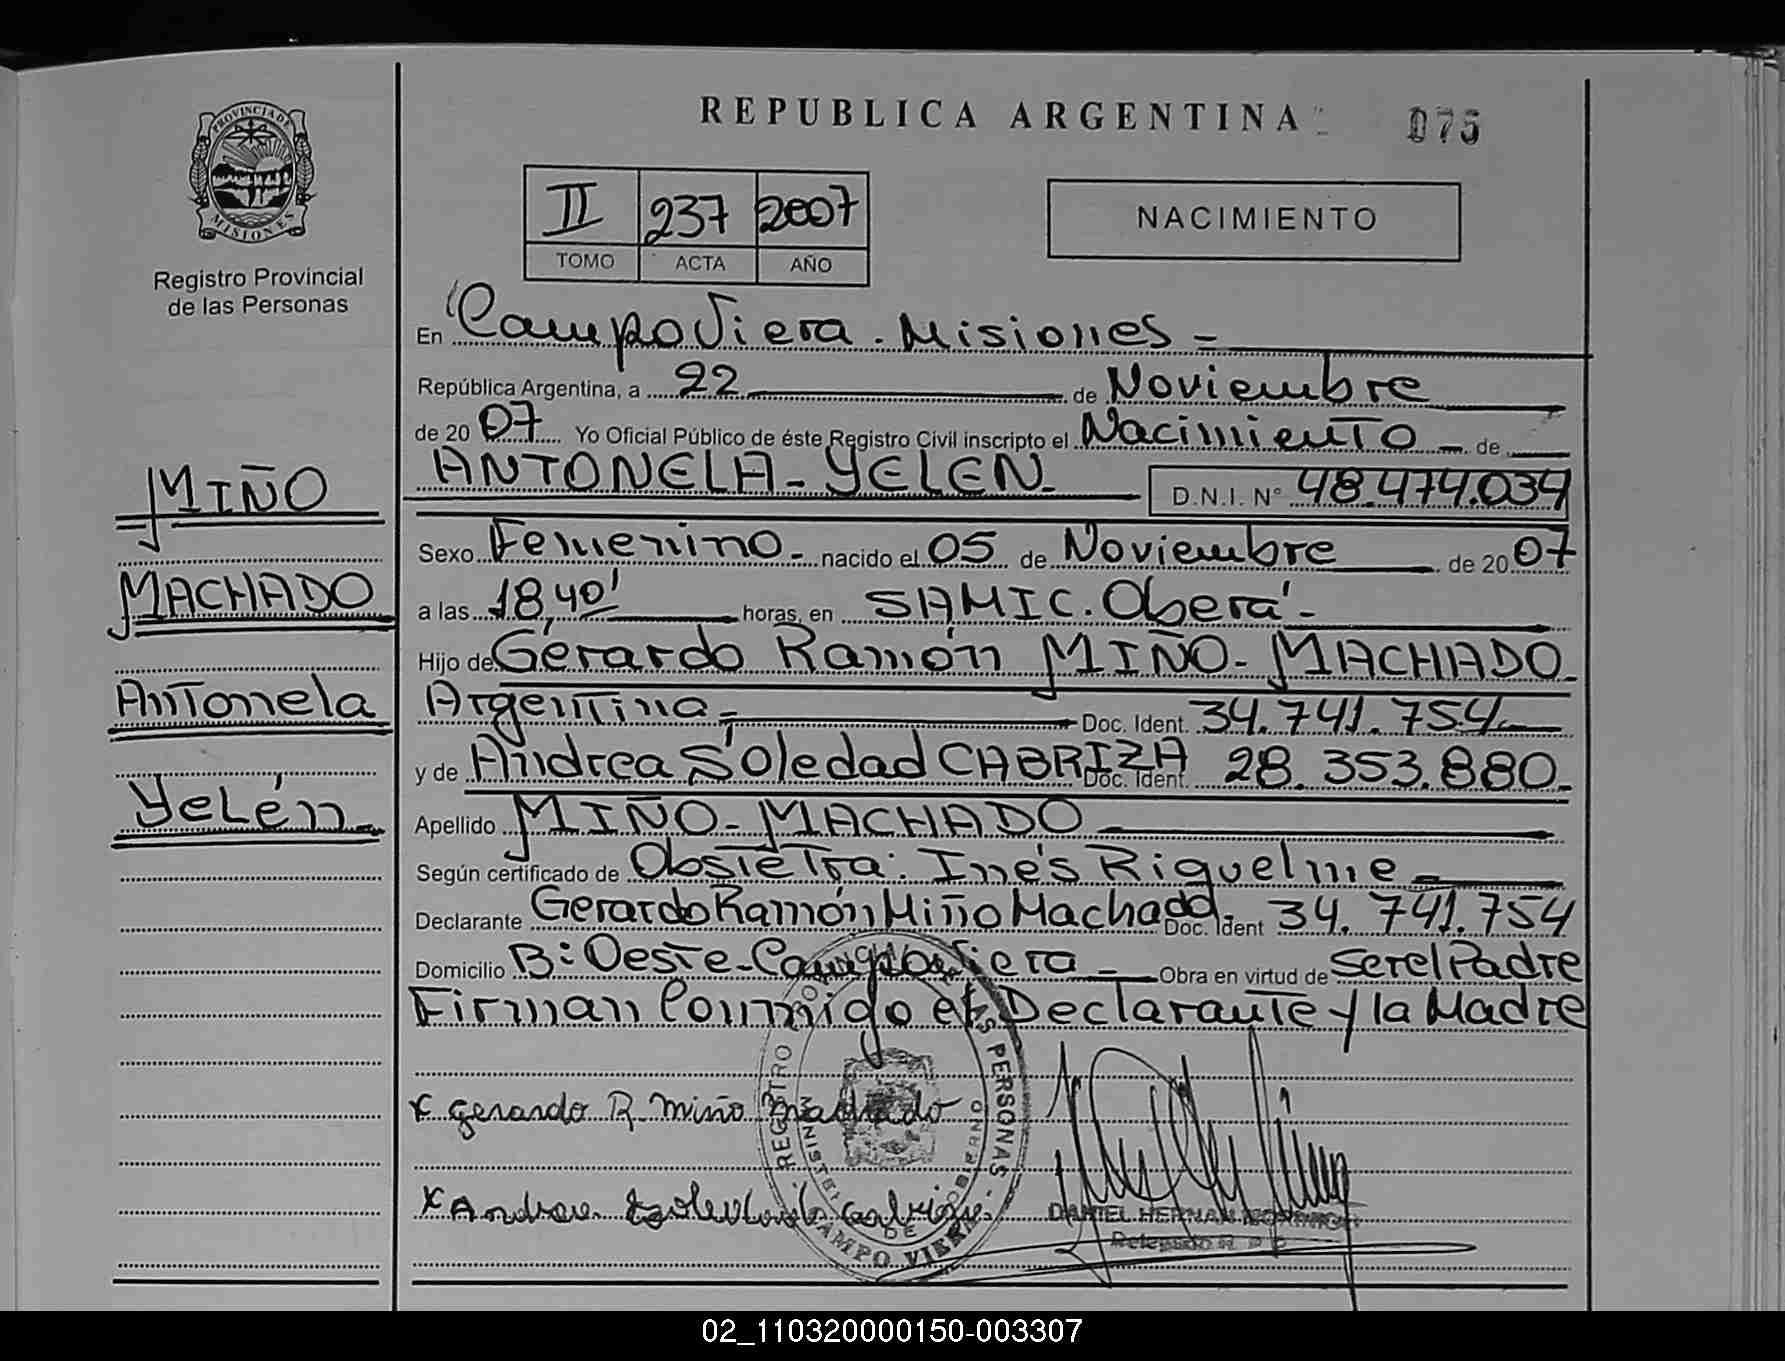 REPUBLICA ARGENTINA
075
PROVINCIA DE
MISIONES
Registro Provincial
de las Personas
II 237 2007
TOMO ACTA AÑO
NACIMIENTO
En Campo Viera. Misiones =
República Argentina, a 22 de Noviembre
de 20 07 Yo Oficial Público de éste Registro Civil inscripto el Nacimiento - de
ANTONELA - YELEN - D.N.I. N° 48.474.034
Sexo Femenino - nacido el 05 de Noviembre de 20 07
a las 18,40' horas, en SAMIC. Oberá -
Hijo de Gerardo Ramón MIÑO - MACHADO -
Argentina = Doc. Ident. 34.741.754
y de Andrea Soledad CABRIZA Doc. Ident. 28.353.880 -
Apellido MIÑO - MACHADO
Según certificado de Obstetra: Inés Riquelme =
Declarante Gerardo Ramón Miño Machado - Doc. Ident 34.741.754
Domicilio B: Oeste - Campo Viera = Obra en virtud de ser el Padre
Firman Conmigo el Declarante y la Madre
MIÑO
MACHADO
Antonela
Yelén -
x Gerardo R. Miño Machado
x Andrea Soledad Cabriza.
REGISTRO PROVINCIAL DE LAS PERSONAS
MINISTERIO DE GOBIERNO
CAMPO VIERA
DANIEL HERNAN
Delegado R. P. P.
02_110320000150-003307